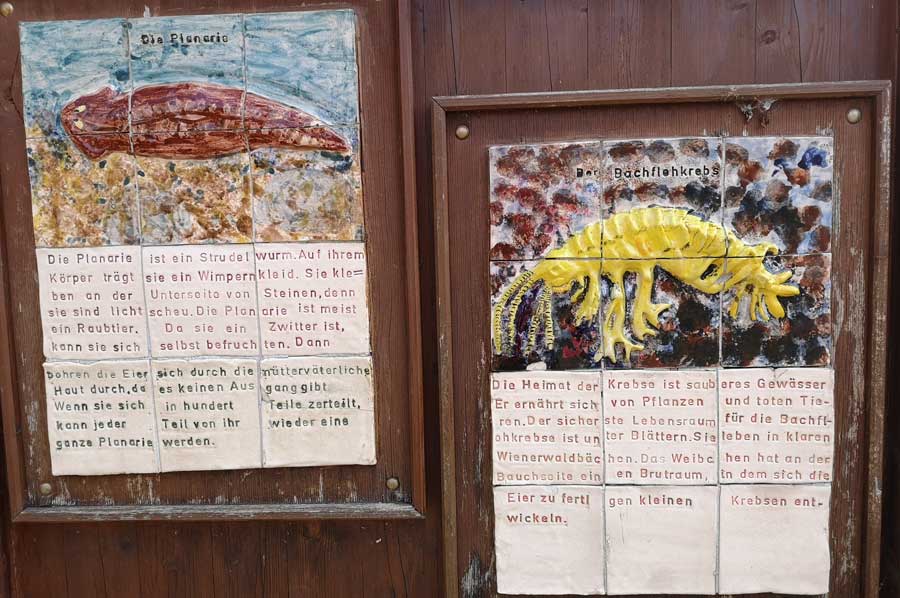 Die Planarie
Die Planarie ist ein Strudel wurm. Auf ihrem
Körper trägt sie ein Wimpern kleid. Sie kle=
ben an der Unterseite von Steinen, denn
sie sind licht scheu. Die Plan arie ist meist
ein Raubtier. Da sie ein Zwitter ist,
kann sie sich selbst befruch ten. Dann
bohren die Eier sich durch die mütterväterliche
Haut durch, da es keinen Aus gang gibt
Wenn sie sich in hundert Teile zerteilt,
kann jeder Teil von ihr wieder eine
ganze Planarie werden.
Der Bachflohkrebs
Die Heimat der Krebse ist saub eres Gewässer
Er ernährt sich von Pflanzen und toten Tie-
ren. Der sicher ste Lebensraum für die Bachfl-
ohkrebse ist un ter Blättern. Sie leben in klaren
Wienerwaldbäc hen. Das Weibc hen hat an der
Bauchseite ein en Brutraum, in dem sich die
Eier zu fertı gen kleinen Krebsen ent-
wickeln.